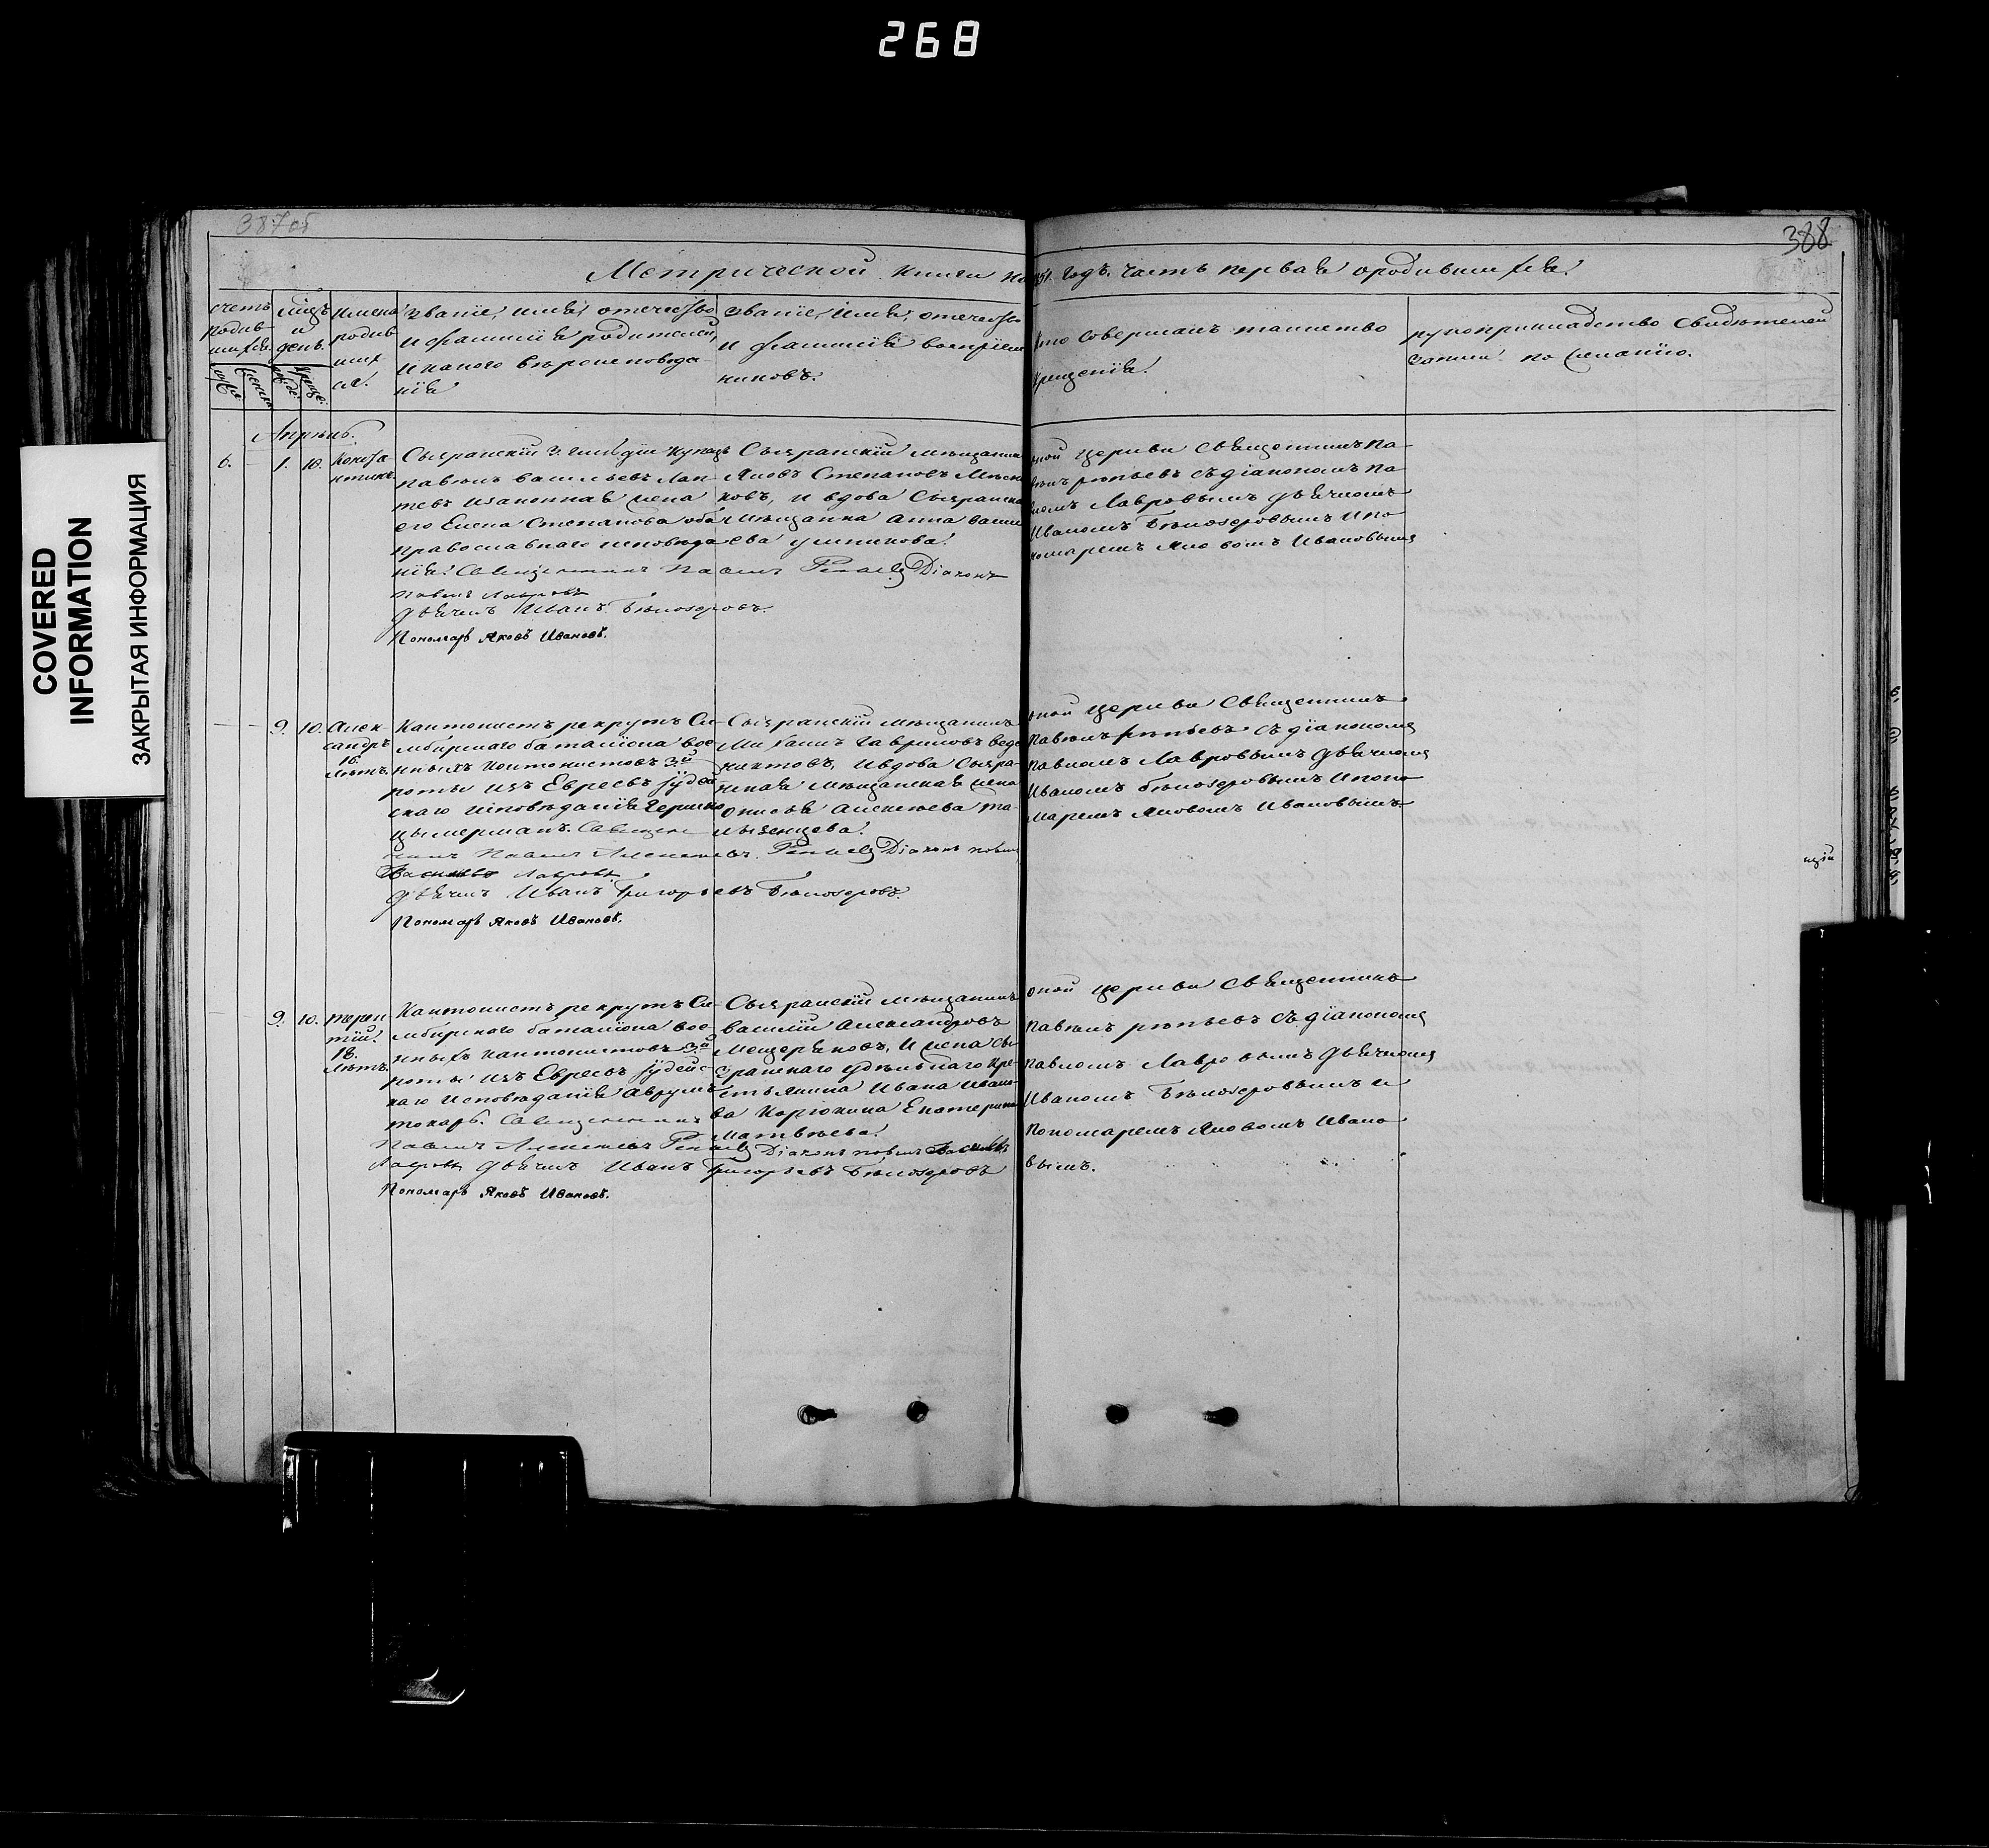 268
COVERED
INFORMATION
ЗАКРЫТАЯ ИНФОРМАЦИЯ
387об
388
Метрической книги на 1851. годъ. часть первая о родившихся.
счетъ родившихся
мцъ и день.
имена родившихся.
званіе, имя, отечество
и фамилія родителей,
и какого вѣроисповѣда
нія
званіе, имя, отечество
и фамилія воспріем
никовъ.
кто совершалъ таинство
крещенія.
рукоприкладство свидѣтелей
записи по желанію.
Апрѣль.
6. 1. 10.
Конста
нтинъ
Сызранскій 3. гильдіи купецъ
Павелъ Васильевъ Лап
тевъ и законная жена
его Елена Степанова оба
православнаго исповѣда
нія. Священникъ Павелъ Діаконъ
Павелъ Лавровъ
Дьячекъ Иванъ Бѣлозеровъ.
Пономарь Яковъ Ивановъ.
Сызранскій мѣщанинъ
Яковъ Степановъ
ковъ, и вдова Сызранска
мѣщанка Анна Васи
ева
оной церкви священникъ Па
велъ Рѣпьевъ съ діакономъ Па
вломъ Лавровымъ дьячкомъ
Иваномъ Бѣлозеровымъ и по
номаремъ Яковомъ Ивановымъ
9. 10.
Алек
сандръ
16.
лѣтъ.
Кантонистъ рекрутъ Си
мбирскаго баталіона вое
нныхъ кантонистовъ 3й
роты изъ Евреевъ іудей
скаго исповѣданія Гершко
Цымерманъ. Священ
никъ Павелъ Алексеевъ Діаконъ Павелъ
Лавровъ
Дьячекъ Иванъ Григорьевъ Бѣлозеровъ.
Пономарь Яковъ Ивановъ.
Сызранскій мѣщанинъ
Михаилъ Гавриловъ
и вдова Сызра
нская мѣщанская жена
Алексѣева
оной церкви Священникъ
Павелъ Рѣпьевъ съ діакономъ
Павломъ Лавровымъ дьячкомъ
Иваномъ Бѣлозеровымъ и поно
маремъ Яковомъ Ивановымъ.
9. 10.
Терен
тій.
18.
лѣтъ.
Кантонистъ рекрутъ Си
мбирскаго баталіона вое
нныхъ кантонистовъ 3й
роты изъ Евреевъ іудейс
каго исповѣданія Аврумъ
Токарь. Священникъ
Павелъ Алексеевъ Діаконъ Павелъ
Лавровъ Дьячекъ Иванъ Григорьевъ Бѣлозеровъ
Пономарь Яковъ Ивановъ.
Сызранскій мѣщанинъ
Василій Александровъ
Мещеряковъ, и жена Сы
зранскаго удѣльнаго кре
стьянина Ивана Ивано
ва Карюкина Екатерина
Матвѣева.
оной церкви священникъ
Павелъ Рѣпьевъ съ діакономъ
Павломъ Лавровымъ дьячкомъ
Иваномъ Бѣлозеровымъ и
пономаремъ Яковомъ Ивано
вымъ.